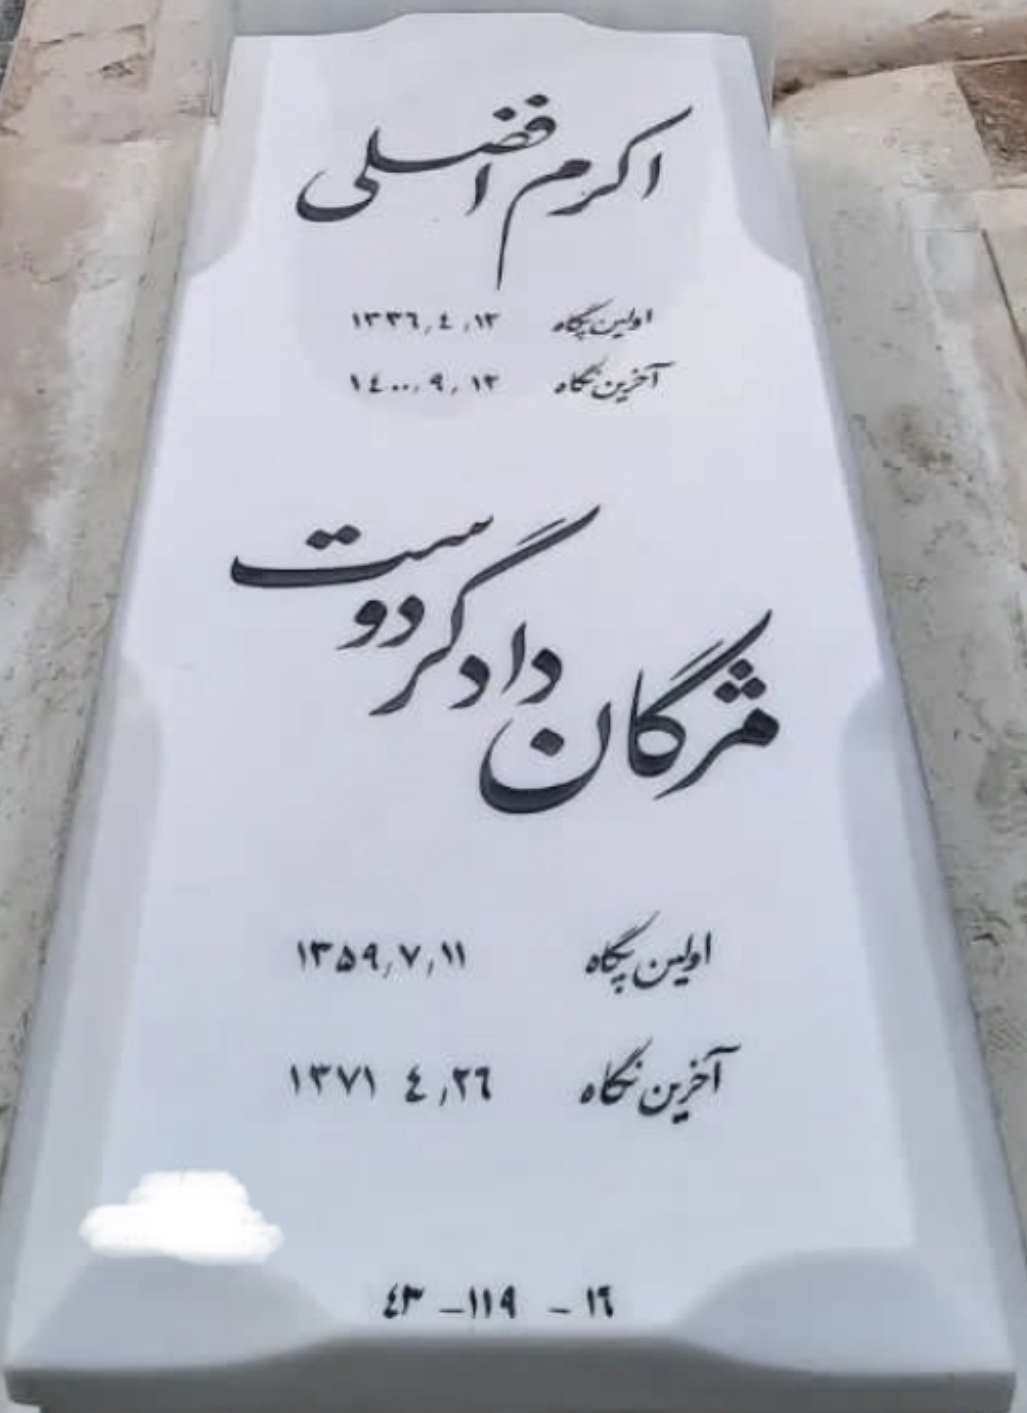 اکرم افضلی
اولین پگاه ۱۳۳٦,٤,۱۳
آخرین نگاه ۱٤۰۰,۹,۱۳
مژگان دادگر دوست
اولین پگاه ۱۳۵۹,۷,۱۱
آخرین نگاه ۱۳۷۱ ٤,۲٦
٤۳ –۱۱۹ – ۱٦